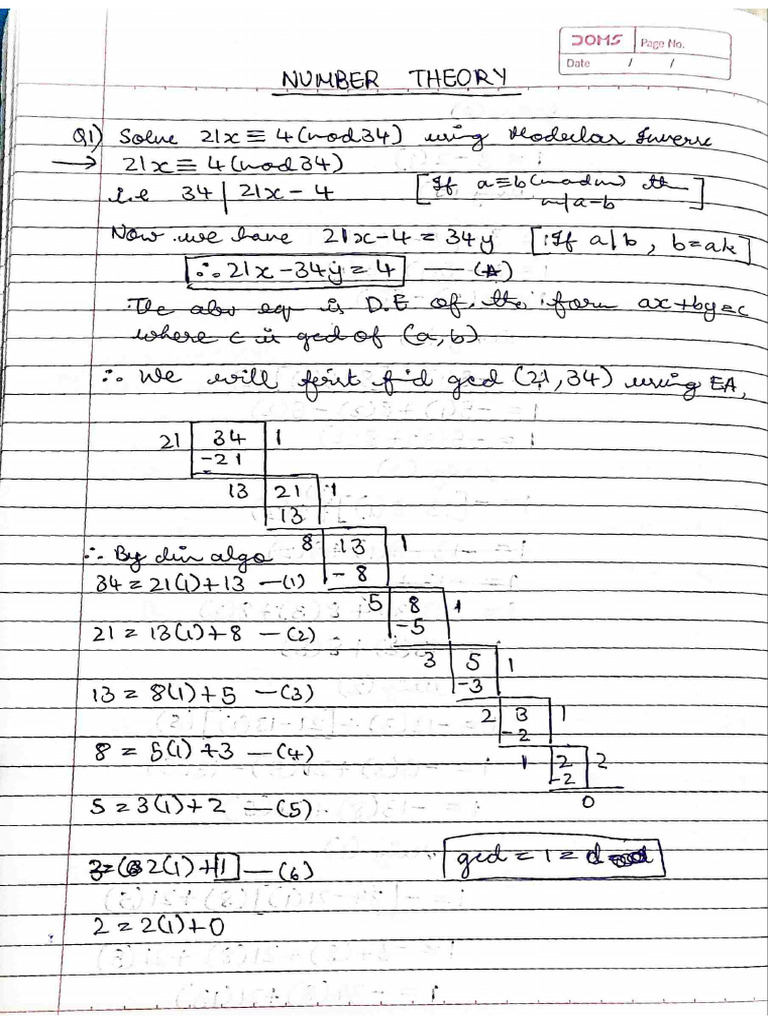 DOMS Page No.
Date / /
NUMBER THEORY
Q1) Solve 21x ≡ 4 (mod 34) using Modular Inverse
→ 21x ≡ 4 (mod 34)
i.e 34 | 21x - 4 [If a ≡ b (mod m) th m | a-b]
Now we have 21x-4 = 34y [if a|b, b=ak]
∴ 21x - 34y = 4 — (A)
The abv eqn is D.E of the form ax+by=c
where c is gcd of (a,b)
∴ We will first find gcd (21,34) using EA,
21 34 1
-21
13 21 1
13
8 13 1
- 8
5 8 1
-5
3 5 1
-3
2 3 1
-2
1 2 2
-2
0
∴ By divn algo
34 = 21(1)+13 —(1)
21 = 13(1)+8 —(2)
13 = 8(1)+5 —(3)
8 = 5(1)+3 —(4)
5 = 3(1)+2 —(5)
3= 2(1)+1 —(6)
gcd = 1 = d
2 = 2(1)+0